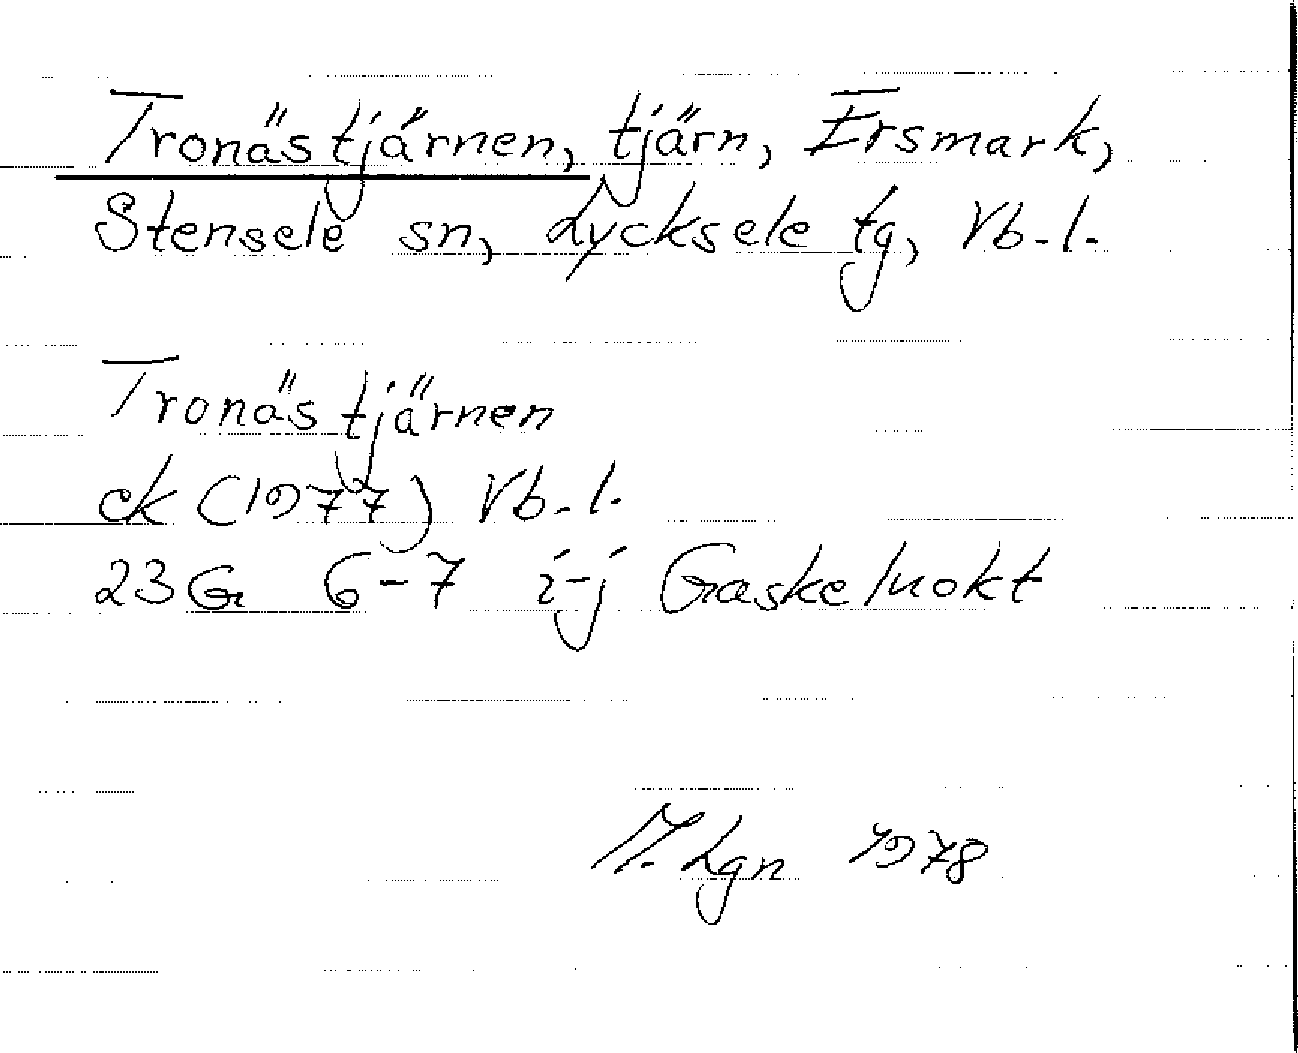 Tronästjärnen, tjärn, Ersmark,
Stensele sn, Lycksele tg, Vb. l.
Tronästjärnen
ek (1977) Vb. l.
23G 6-7 i-j Gaskeluokt
M. Lgn 1978